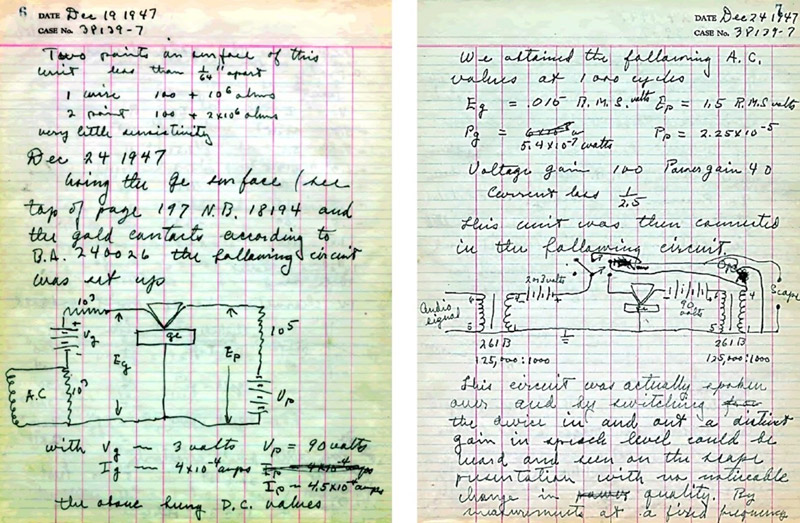 6
DATE Dec 19 1947
CASE No. 38139-7
Two points on surface of this
unit less than 1/64" apart
1 wire 100 + 10⁶ ohms
2 point 100 + 2x10⁶ ohms
very little sensitivity
Dec 24 1947
Using the Ge surface (see
top of page 197 N.B. 18194 and
the gold contacts according to
B.A. 240026 the following circuit
was set up
10³
+
Vg
A.C
10³
Eg
ge
Ep
10⁵
Vp
with Vg ~ 3 volts Vp = 90 volts
Ig ~ 4x10⁻⁴ amps Ip = 4x10⁻⁴ amps
Ip ~ 4.5x10⁻⁴ amps
the above being D.C. values
7
DATE Dec 24 1947
CASE No. 38139-7
We obtained the following A.C.
values at 1000 cycles
Eg = .015 R.M.S. volts Ep = 1.5 R.M.S volts
Pg = Pp = 2.25x10⁻⁵
5.4x10⁻⁷ watts
Voltage gain 100 Power gain 40
Current loss 1/2.5
This unit was then connected
in the following circuit.
2 or 3 volts
Audio signal
6
5
4
1
ge
90 volts
6
5
4
1
Scope
261B
125,000:1000
261B
125,000:1000
This circuit was actually spoken
over and by switching
the device in and out a distinct
gain in speech level could be
heard and seen on the scope
presentation with no noticeable
change in power quality. By
measurements at a fixed frequency